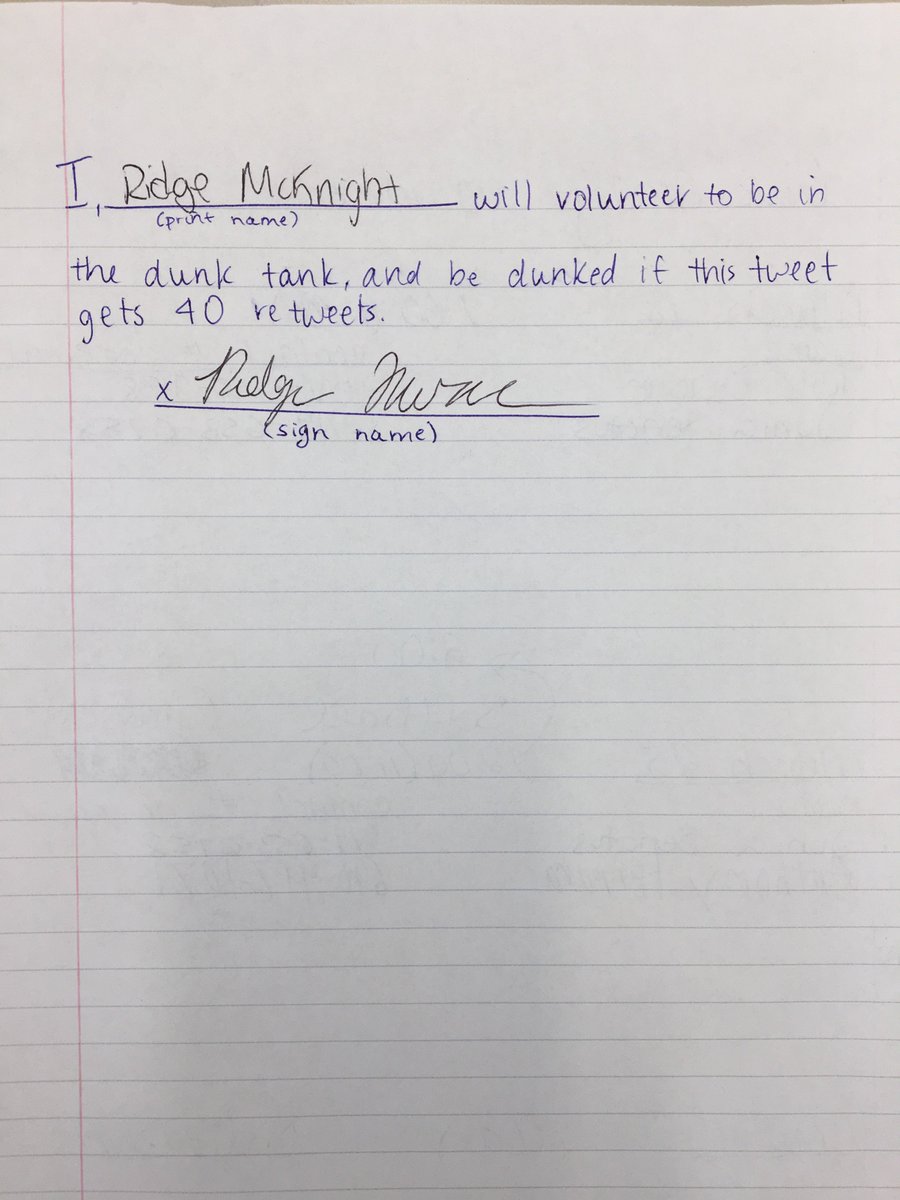 I, Ridge McKnight will volunteer to be in
(print name)
the dunk tank, and be dunked if this tweet
gets 40 retweets.
x Ridge
(sign name)